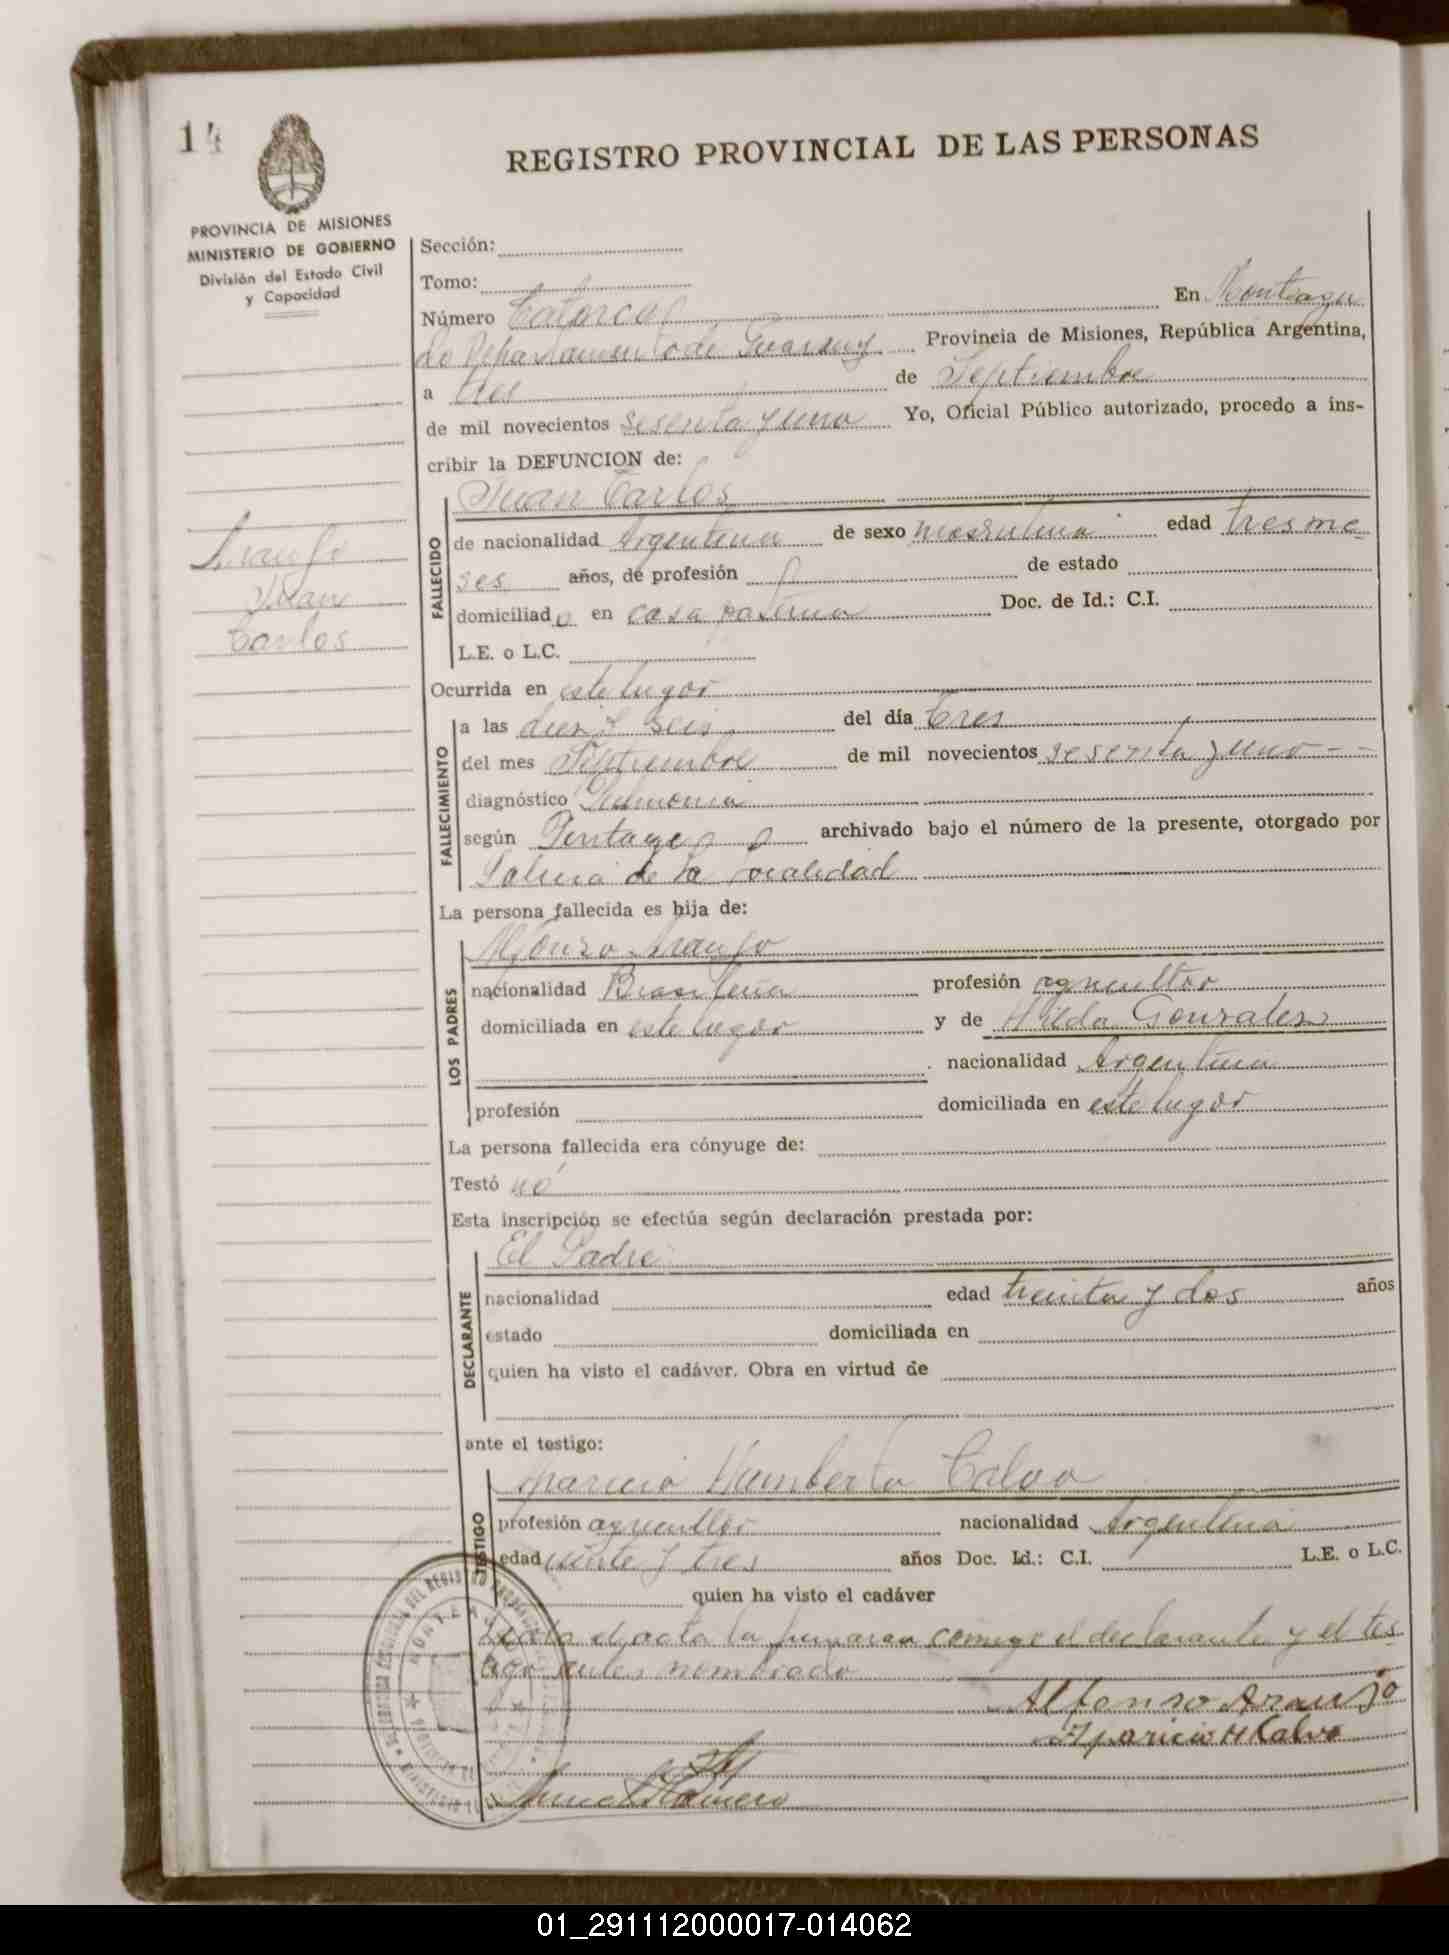 14
REGISTRO PROVINCIAL DE LAS PERSONAS
PROVINCIA DE MISIONES
MINISTERIO DE GOBIERNO
División del Estado Civil
y Capacidad
Sección:
Tomo:
Número Catorce En Monteagu
do Departamento de Guarany Provincia de Misiones, República Argentina,
a tres de Septiembre
de mil novecientos sesenta y uno Yo, Oficial Público autorizado, procedo a ins-
cribir la DEFUNCION de:
Araujo
Juan
Carlos
FALLECIDO
Juan Carlos
de nacionalidad Argentina de sexo masculino edad tres me
ses años, de profesión de estado
domiciliado en casa paterna Doc. de Id.: C.I.
L.E. o L.C.
Ocurrida en este lugar
FALLECIMIENTO
a las diez y seis del día tres
del mes Septiembre de mil novecientos sesenta y uno - -
diagnóstico Pulmonia
según archivado bajo el número de la presente, otorgado por
de la localidad
La persona fallecida es hija de:
LOS PADRES
Alfonso Araujo
nacionalidad Brasileña profesión agricultor
domiciliada en este lugar y de Hilda Gonzalez
nacionalidad Argentina
profesión domiciliada en este lugar
La persona fallecida era cónyuge de:
Testó no
Esta inscripción se efectúa según declaración prestada por:
DECLARANTE
El Padre
nacionalidad edad treinta y dos años
estado domiciliada en
quien ha visto el cadáver. Obra en virtud de
ante el testigo:
TESTIGO
Aparicio Humberto Calvo
profesión agricultor nacionalidad Argentina
edad veinte y tres años Doc. Id.: C.I. L.E. o L.C.
quien ha visto el cadáver
Leida el acta la firmaron conmigo el declarante y el tes
tigo antes nombrado
Alfonso Araujo
Aparicio H Calvo
01_291112000017-014062